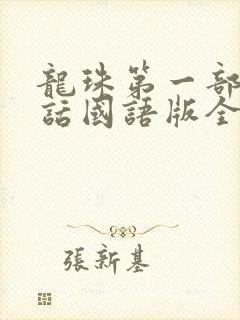 龍珠第一部
話國語版全
張新基